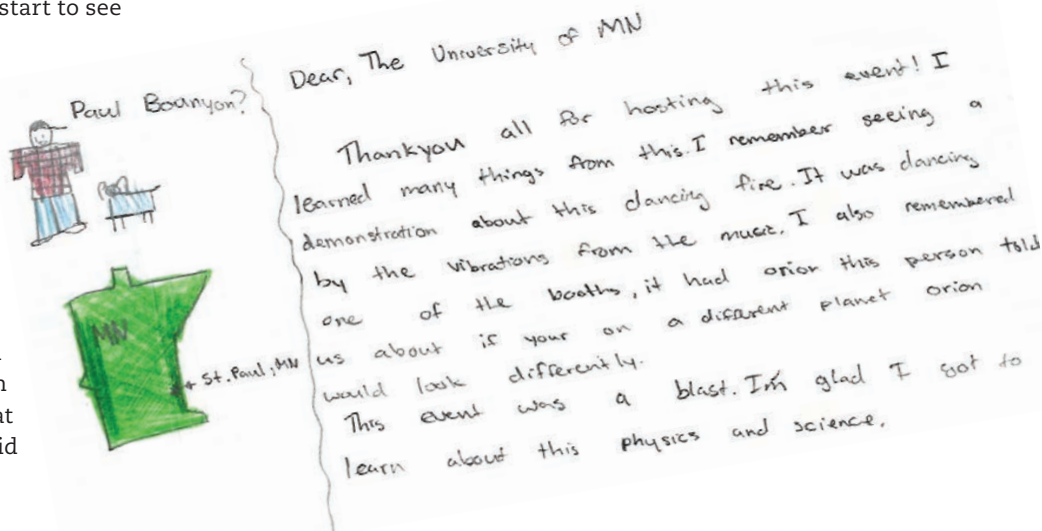 start to see
Paul Boanyon?
MN
St. Paul, MN
n
at
id
Dear, The University of MN
Thankyou all for hosting this event! I
learned many things from this. I remember seeing a
demonstration about this dancing fire. It was dancing
by the vibrations from the music. I also remembered
one of the booths, it had orion this person told
us about if your on a different planet orion
would look differently.
This event was a blast. I'm glad I got to
learn about this physics and science.